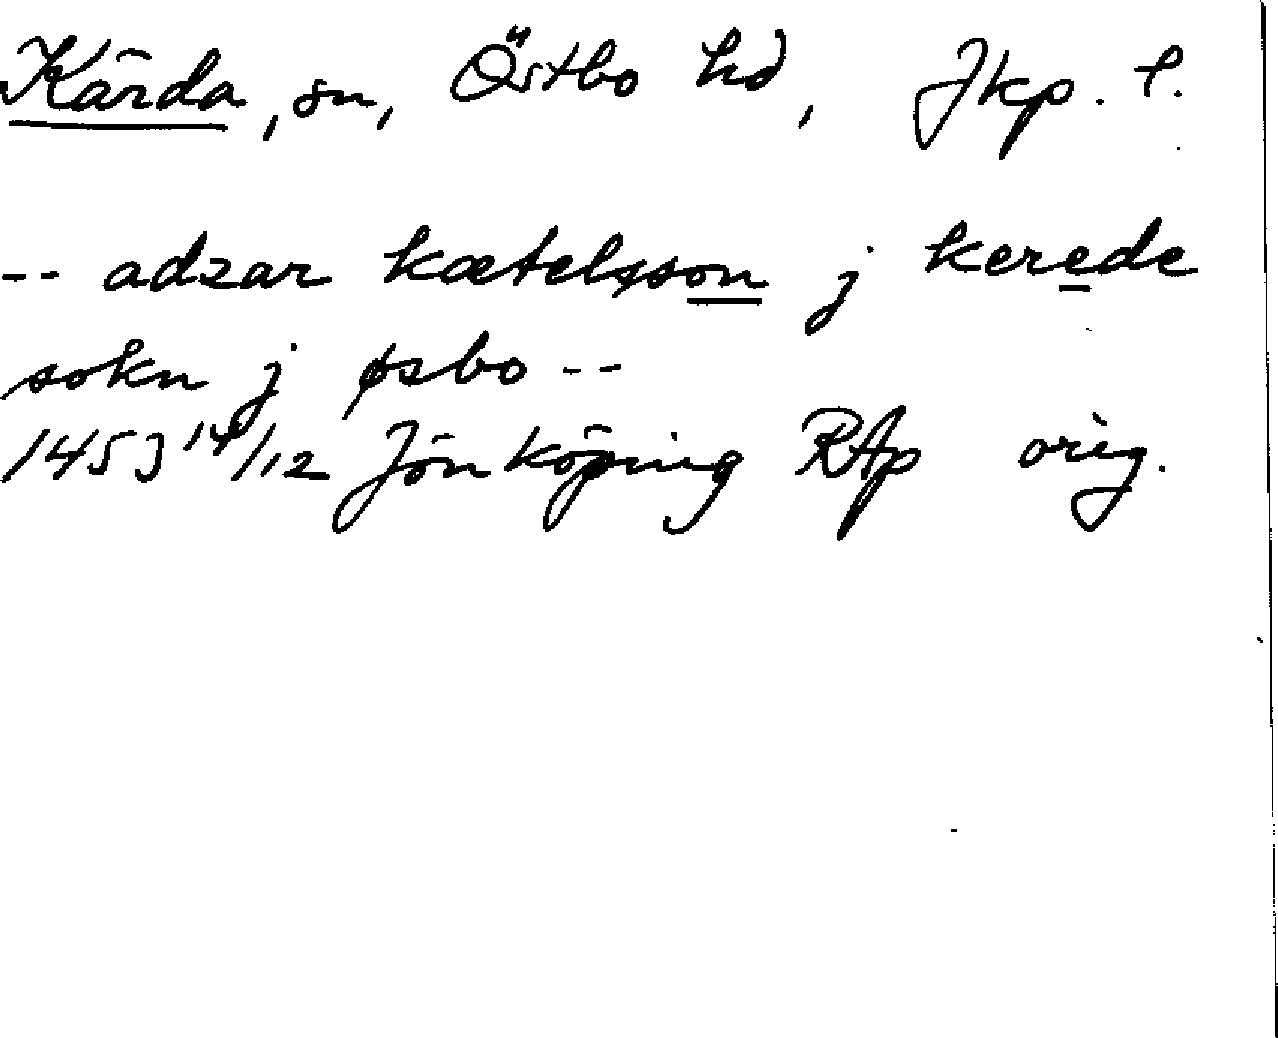 Kärda, sn, Östbo hd, Jkp. l.
-- adzar kætelsson j kerede
sokn j øsbo --
1453 14/12 Jönköping RAp orig.